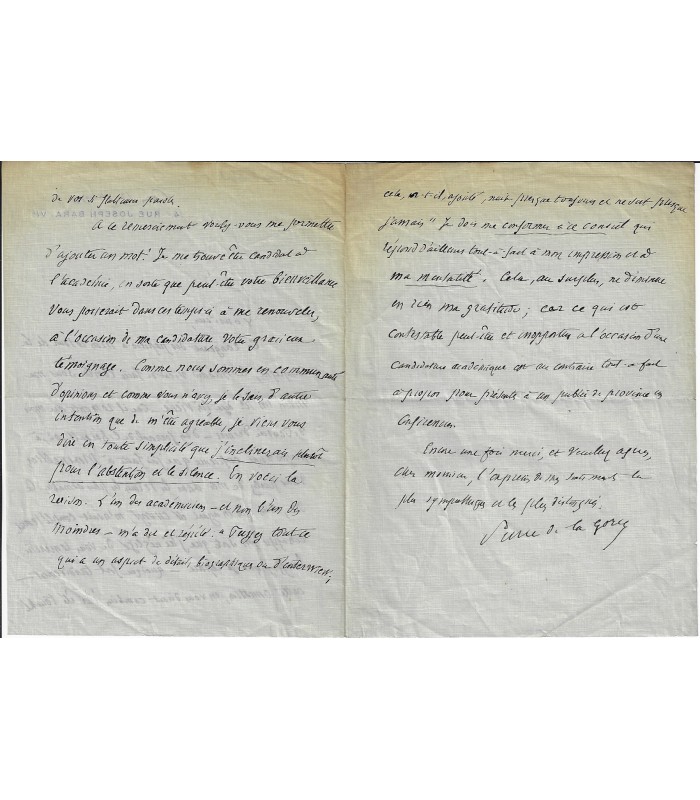 de vos si flatteuses paroles.
4, RUE JOSEPH BARA. VI
A ce remerciement voulez-vous me permettre
d'ajouter un mot? Je me trouve être candidat à
l'académie, en sorte que peut-être votre bienveillance
vous porterait dans ces temps ci à me renouveler,
à l'occasion de ma candidature votre gracieux
témoignage. Comme nous sommes en communauté
d'opinions et comme vous n'avez, je le sais, d'autre
intention que de m'être agréable, je viens vous
dire en toute simplicité que j'inclinerais plutôt
pour l'abstention et le silence. En voici la
raison. L'un des académiciens - et non l'un des
moindres - m'a dit et répété: "Fuyez tout ce
qui a un aspect de détails biographiques ou d'interview;
cela, a-t-il ajouté, nuit presque toujours et ne sert presque
jamais" Je dois me conformer à ce conseil qui
répond d'ailleurs tout-à-fait à mon impression et à
ma mentalité. Cela, au surplus, ne diminue
en rien ma gratitude; car ce qui est
contestable peut-être et inopportun à l'occasion d'une
candidature académique est au contraire tout-à-fait
à propos pour présenter à un public de province un
conférencier.
Encore une fois merci, et veuillez agréer,
cher monsieur, l'expression de mes sentiments les
plus sympathiques et les plus distingués.
Pierre de la Gorce